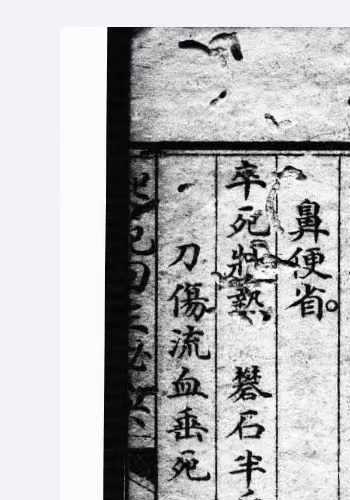 鼻便省。
卒死壯熱　礬石半
刀傷流血垂死